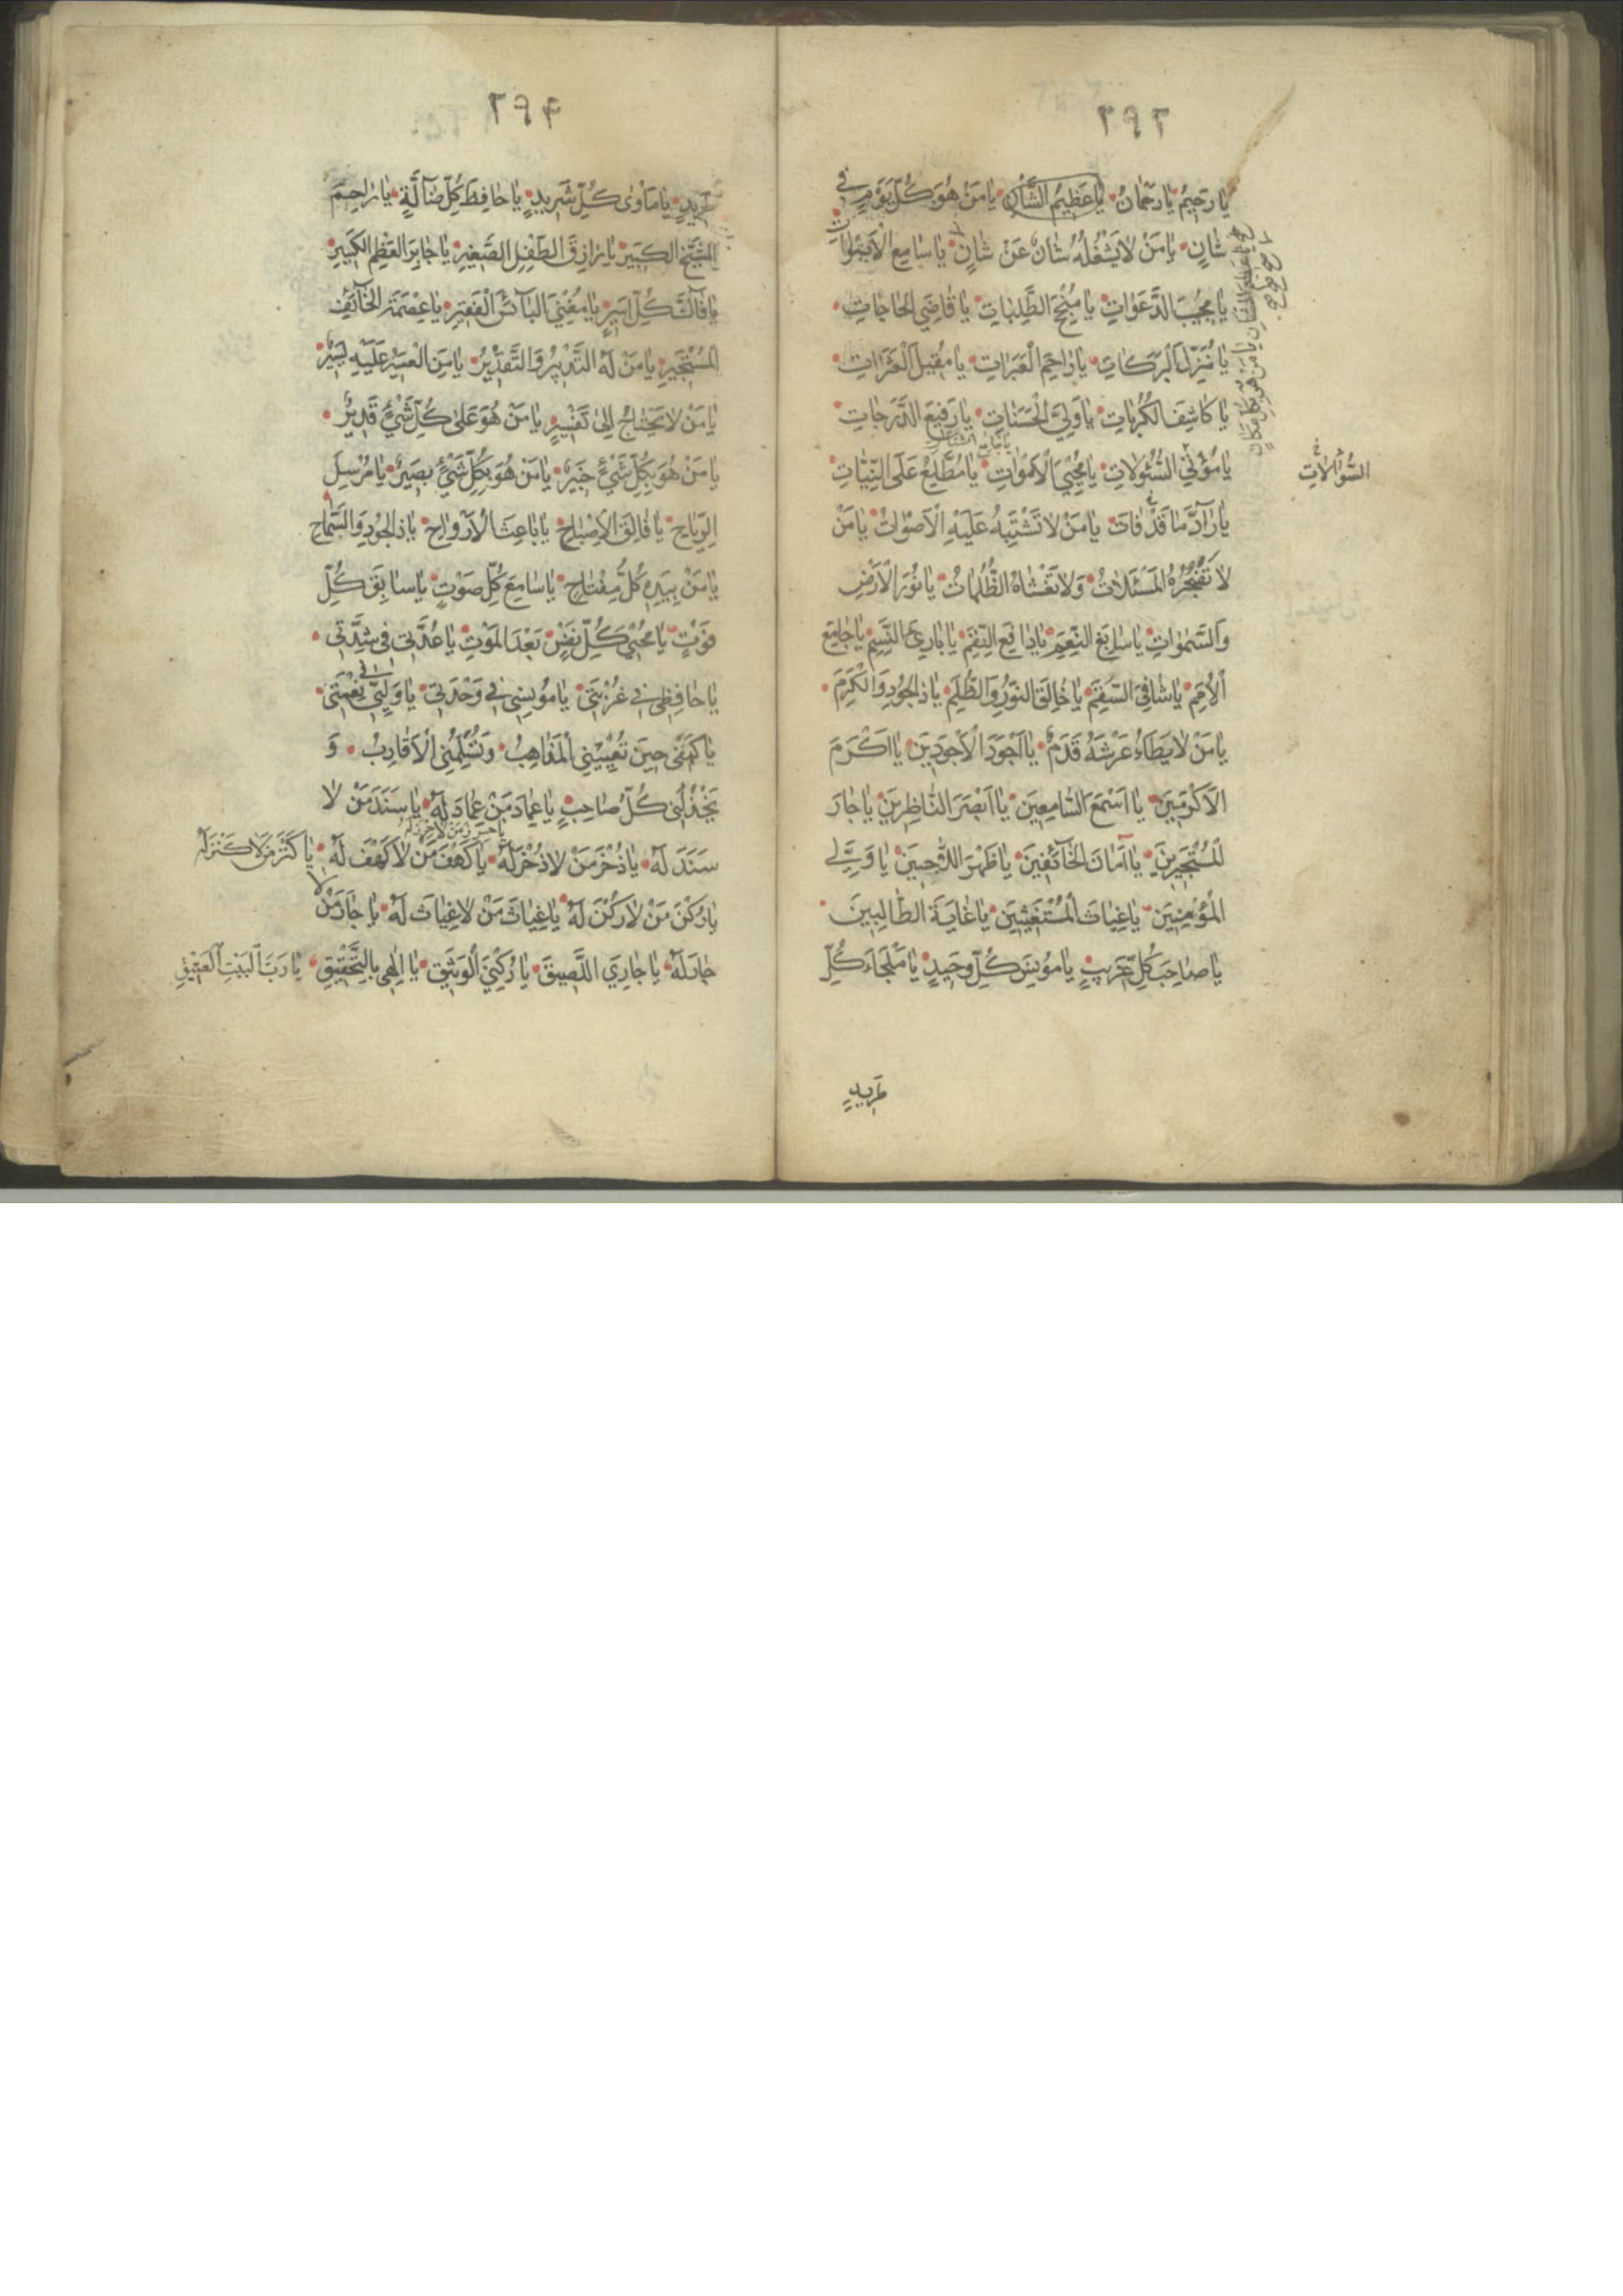 ٢٩٣
يا رَحيمُ يا رَحْمانُ يا عَظيمَ الشَّأنِ يا مَنْ هُوَ كُلَّ يَوْمٍ في
شَانٍ يا مَنْ لا يَشْغُلُهُ شَانٌ عَنْ شَانٍ يا سامِعَ الْاَصْواتِ
يا مُجيبَ الدَّعَواتِ يا مُنْجِحَ الطَّلِباتِ يا قاضِيَ الحاجاتِ
يا مُنْزِلَ الْبَرَكاتِ يا راحِمَ الْعَبَراتِ يا مُقيلَ الْعَثَراتِ
يا كاشِفَ الكُرُباتِ يا وَلِيَّ الْحَسَناتِ يا رَفيعَ الدَّرَجاتِ
يا مُؤْتِيَ السُّؤلاتِ يا مُحْيِيَ الْاَمْواتِ يا مُطَّلِعُ عَلَى النِّيّاتِ
السُّؤالاتِ
يا رادَّ ما قَدْ فاتَ يا مَنْ لا تَشْتَبِهُ عَلَيْهِ الْاَصْواتُ يا مَنْ
لا تُضْجِرُهُ المَسْئَلاتُ وَلا تَغْشاهُ الظُّلُماتُ يا نُورَ الْاَرْضِ
وَالسَّمٰواتِ يا سابِغَ النِّعَمِ يا دافِعَ النِّقَمِ يا بارِئَ النَّسَمِ يا جامِعَ
الْاُمَمِ يا شافِيَ السَّقَمِ يا خالِقَ النُّورِ وَالظُّلَمِ يا ذَا الجُودِ وَالْكَرَمِ
يا مَنْ لا يَطَاءُ عَرْشَهُ قَدَمٌ يا اَجْوَدَ الْاَجْوَدينَ يا اَكْرَمَ
الْاَكْرَمينَ يا اَسْمَعَ السّامِعينَ يا اَبْصَرَ النّاظِرينَ يا جارَ
الْمُسْتَجيرينَ يا اَمانَ الخآئِفينَ يا ظَهْرَ اللّاجينَ يا وَلِيَّ
الْمُؤْمِنينَ يا غِياثَ الْمُسْتَغيثينَ يا غايَةَ الطّالِبينَ
يا صاحِبَ كُلِّ غَريبٍ يا مُونِسَ كُلِّ وَحيدٍ يا مَلْجَاءَ كُلِّ
طَريدٍ
٢٩٤
طَريدٍ يا مَأوٰى كُلِّ شَريدٍ يا حافِظَ كُلِّ ضآلَّةٍ يا راحِمَ
الشَّيْخِ الكَبيرِ يا رازِقَ الطِّفْلِ الصَّغيرِ يا جابِرَ العَظْمِ الكَسيرِ
يا فآكَّ كُلِّ اَسيرٍ يا مُغْنِيَ البآئِسِ الْفَقيرِ يا عِصْمَةَ الخآئِفِ
الْمُسْتَجيرِ يا مَنْ لَهُ التَّدْبيرُ وَالتَّقْديرُ يا مَنِ الْعَسيرُ عَلَيْهِ يَسيرٌ
يا مَنْ لا يَحْتاجُ اِلى تَفْسيرٍ يا مَنْ هُوَ عَلى كُلِّ شَيْءٍ قَديرٌ
يا مَنْ هُوَ بِكُلِّ شَيْءٍ خَبيرٌ يا مَنْ هُوَ بِكُلِّ شَيْءٍ بَصيرٌ يا مُرْسِلَ
الرِّياحِ يا فالِقَ الْاِصْباحِ يا باعِثَ الْاَرْواحِ يا ذَا الجُودِ وَالسَّماحِ
يا مَنْ بِيَدِهِ كُلُّ مِفْتاحٍ يا سامِعَ كُلِّ صَوْتٍ يا سابِقَ كُلِّ
فَوْتٍ يا مُحْيِيَ كُلِّ نَفْسٍ بَعْدَ المَوْتِ يا عُدَّتي في شِدَّتي
يا حافِظي في غُرْبَتي يا مُونِسي في وَحْدَتي يا وَلِيّي في نِعْمَتي
يا كَهْفي حينَ تُعْييني الْمَذاهِبُ وَتُسَلِّمُنِي الْاَقارِبُ وَ
يَخْذُلُني كُلُّ صاحِبٍ يا عِمادَ مَنْ لا عِمادَ لَهُ يا سَنَدَ مَنْ لا
يا حِرْزَ مَنْ لا حِرْزَ لَهُ
سَنَدَ لَهُ يا ذُخْرَ مَنْ لا ذُخْرَ لَهُ يا كَهْفَ مَنْ لا كَهْفَ لَهُ يا كَنْزَ مَنْ لا كَنْزَ لَهُ
يا رُكْنَ مَنْ لا رُكْنَ لَهُ يا غِياثَ مَنْ لا غِياثَ لَهُ يا جارَ مَنْ لا
جارَ لَهُ يا جارِيَ اللَّصيقَ يا رُكْنِيَ الْوَثيقَ يا اِلٰهي بِالتَّحْقيقِ يا رَبَّ البَيْتِ العَتيقِ